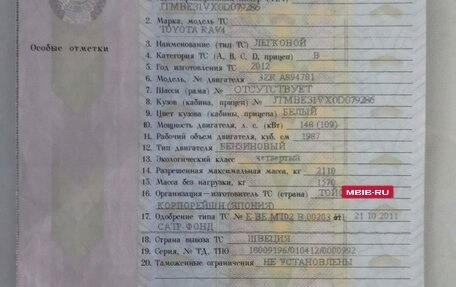 JTMBE31VX0D079286
2. Марка, модель ТС
TOYOTA RAV4
3. Наименование (тип ТС) ЛЕГКОВОЙ
Особые отметки
4. Категория ТС (A, B, C, D, прицеп) B
5. Год изготовления ТС 2012
6. Модель, № двигателя 3ZR A894781
7. Шасси (рама) № ОТСУТСТВУЕТ
8. Кузов (кабина, прицеп) № JTMBE31VX0D079286
9. Цвет кузова (кабины, прицепа) БЕЛЫЙ
10. Мощность двигателя, л. с. (кВт) 148 (109)
11. Рабочий объем двигателя, куб. см 1987
12. Тип двигателя БЕНЗИНОВЫЙ
13. Экологический класс четвертый
14. Разрешенная максимальная масса, кг 2110
15. Масса без нагрузки, кг 1570
16. Организация-изготовитель ТС (страна)
MEIB-RU
КОРПОРЕЙШН (ЯПОНИЯ)
17. Одобрение типа ТС № E BE.MT02.B.00203 от 21.10.2011
САТР-ФОНД
18. Страна вывоза ТС ШВЕЦИЯ
19. Серия, № ТД, ТПО 10009196/010412/0000992
20. Таможенные ограничения НЕ УСТАНОВЛЕНЫ